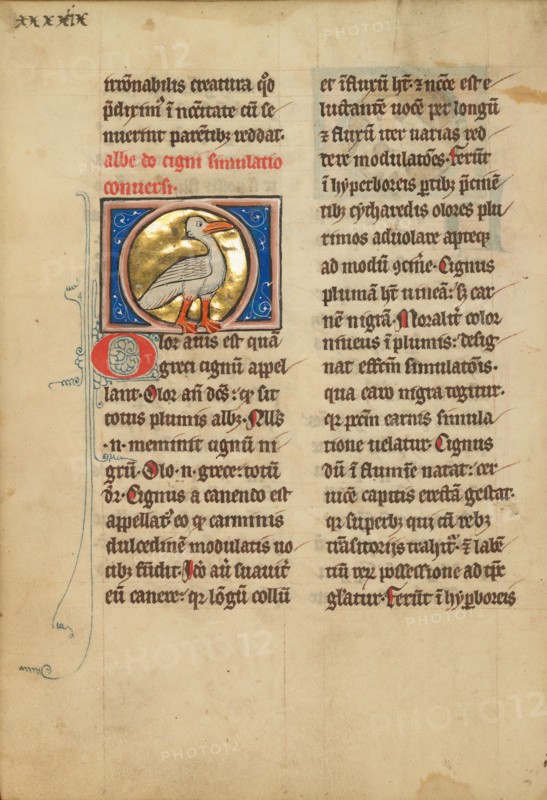 xxxxix
irrōnabilis creatura qd̓o
p̄dixim᷒ ī nccītate cū se
nuerint parētib᷒ reddat.
albedo cigni simulatio
conuersi.
Olor auis est quā
greci cignū appel
lant. Olor aū dc̄s: qp̄ sit
totus plumis alb᷒. Null᷒
.n. meminit cignū ni
grū. Olo .n. grece: totū
dr̄. Cignus a canendo est
appellat᷒ eo qp̄ carminis
dulcedinē modulatis uo
cib᷒ fūdit. Ico aūt suauit̄
eū canere: qr lōgū collū
et īflexū ht̄. z ncc̄e est e
luctantē uocē per longū
z flexū iter uarias red
dere modulatōes. Ferūt
ī hyperboreis ptib᷒ p̄cinē
tib᷒ cytharedis olores plu
rimos aduolare apteq᷒
ad modū 9cinē. Cignus
plumā ht̄ niueā: s᷒ car
nē nigrā. Moralit̄ color
niueus ī plumis: desig
nat effcm̄ simulatōis.
qua caro nigra tegitur.
qr pcc̄m carnis simula
tione uelatur. Cignus
dū ī flumīe natat: cer
uicē capitis erectā gestat.
qr superb᷒ qui cū reb᷒
trāsitoriis trahit̄. z labē
tiū rerz possessione ad tp̄e
gl̄atur. Ferūt ī hypboreis